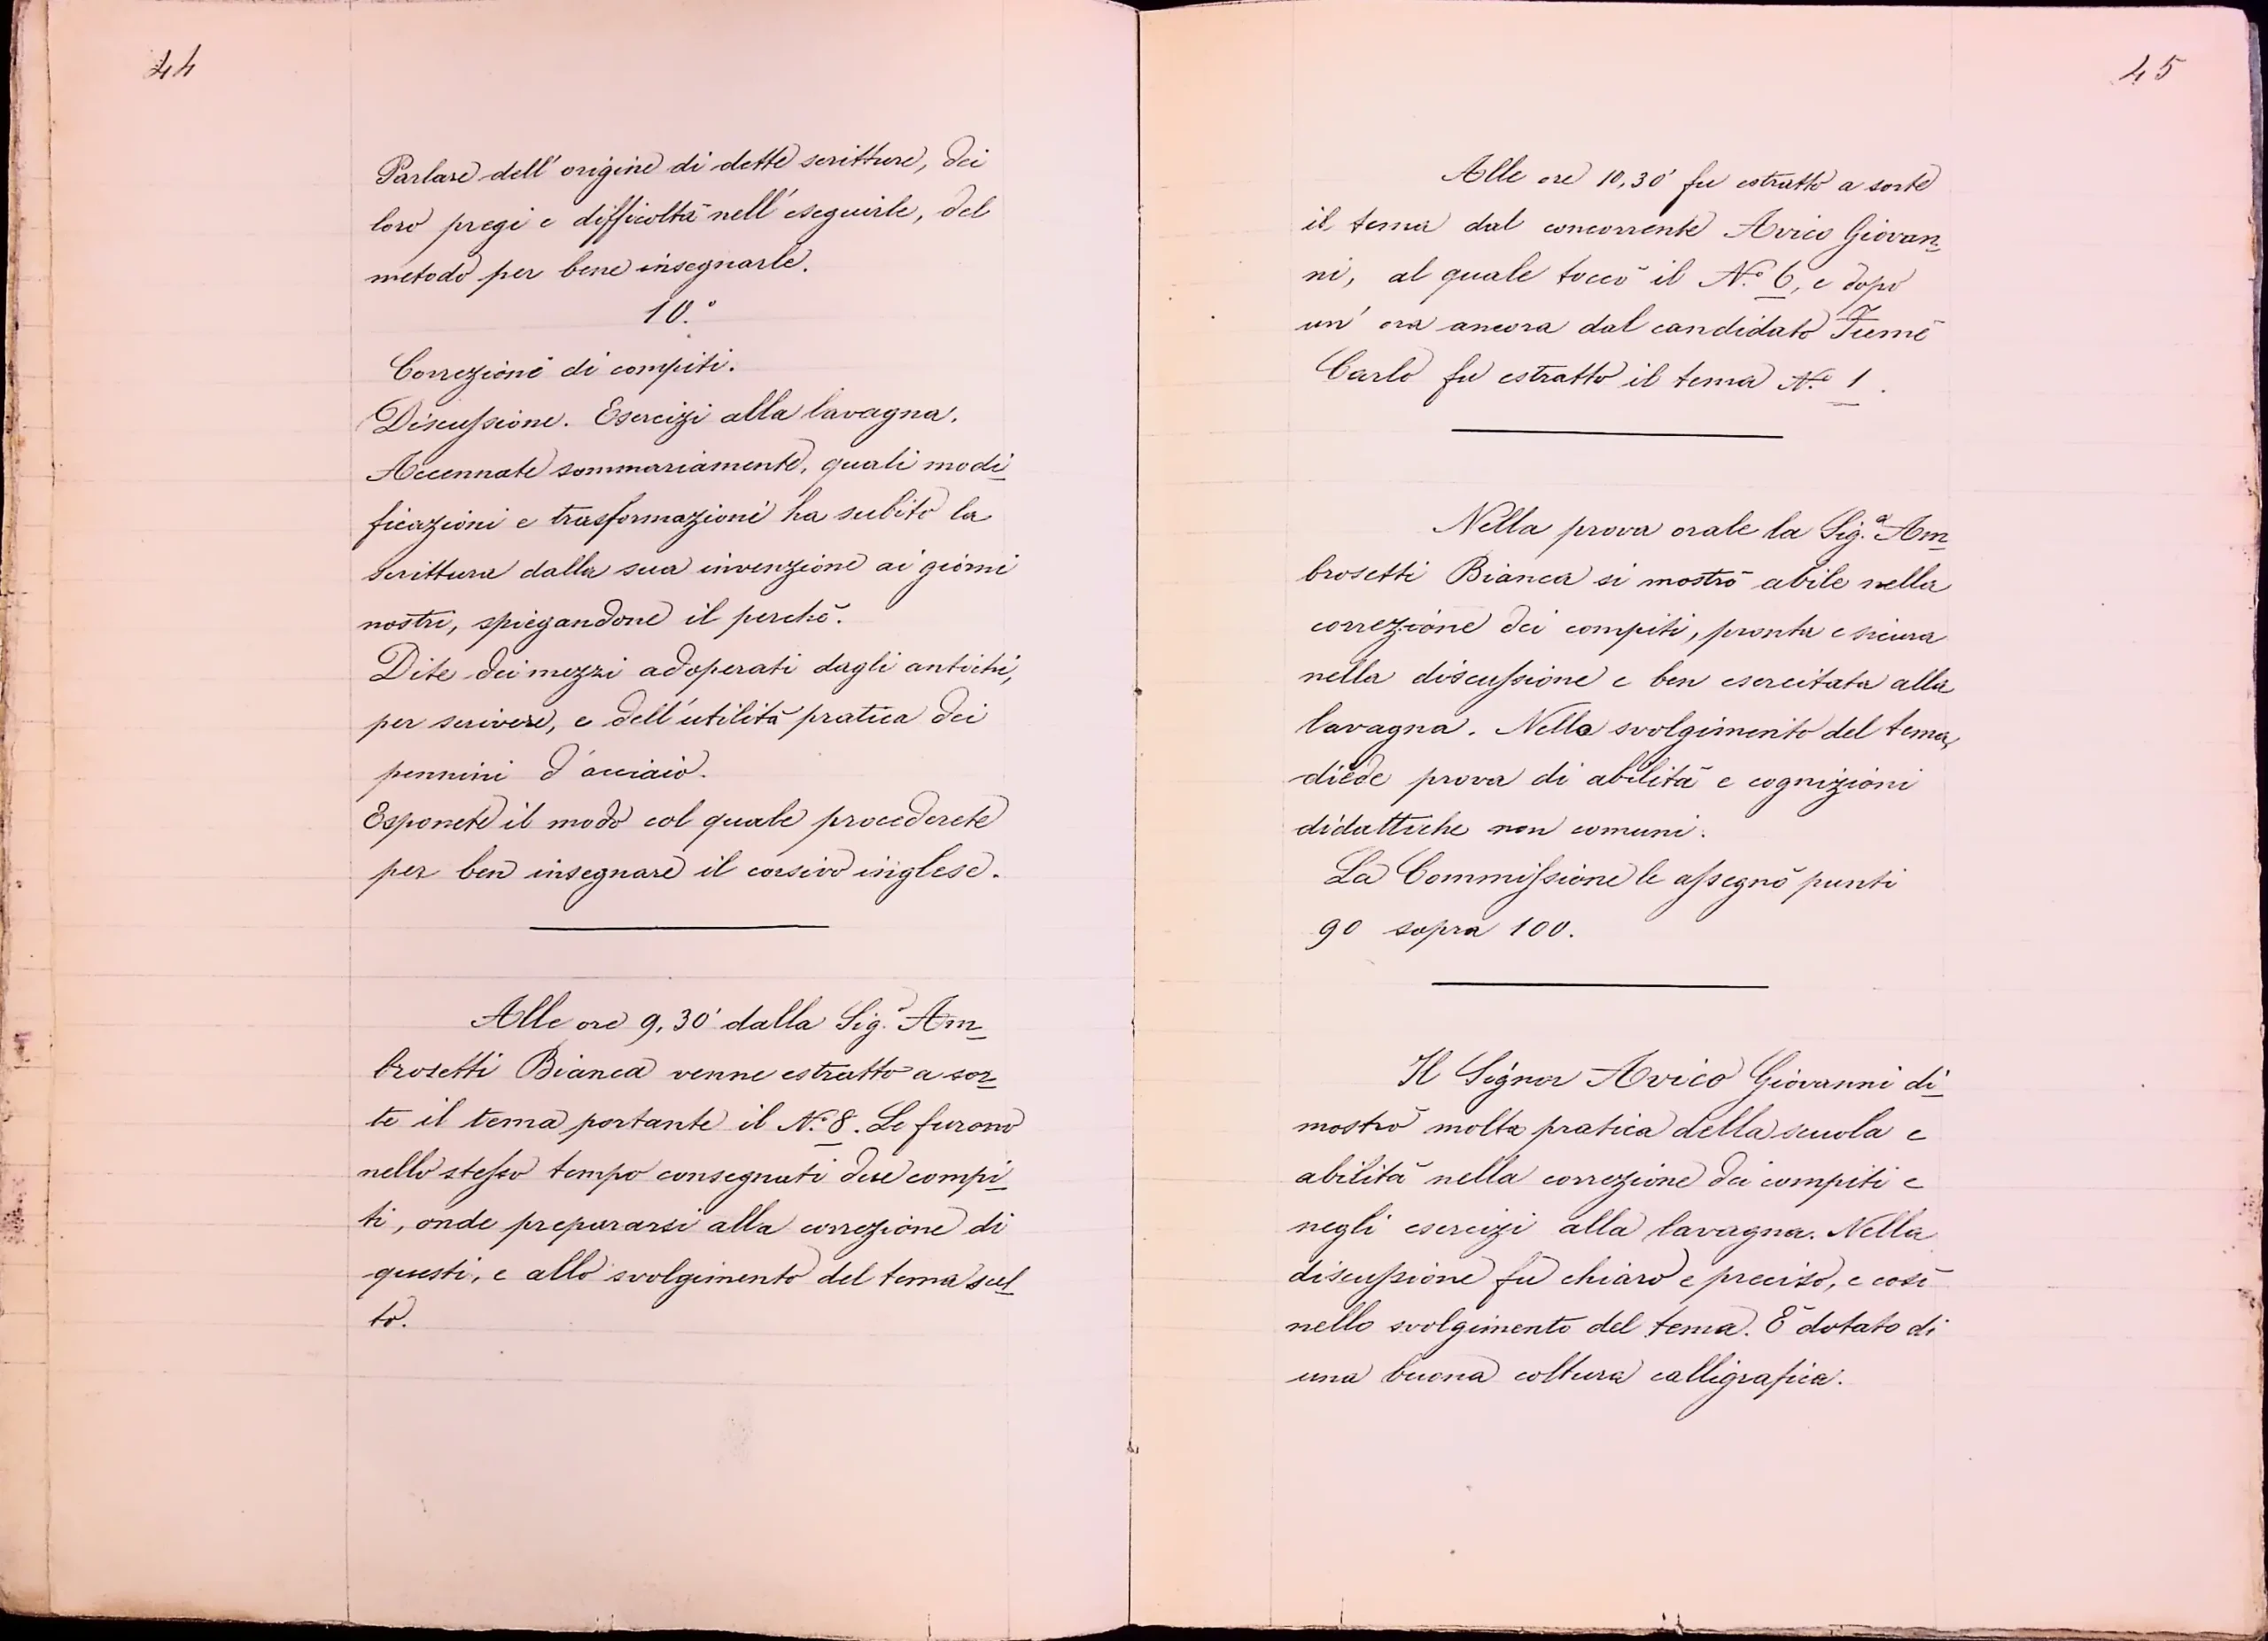 44
Parlare dell' origine di dette scritture, dei
loro pregi e difficoltà nell' eseguirle, del
metodo per bene insegnarle.
10.°
Correzioni di compiti.
Discussione. Esercizi alla lavagna.
Accennate sommariamente, quali modi-
ficazioni e trasformazioni ha subito la
scrittura dalla sua invenzione ai giorni
nostri, spiegandone il perchè.
Dite dei mezzi adoperati dagli antichi,
per scrivere, e dell' utilità pratica dei
pennini d' acciaio.
Esponete il modo col quale procederete
per ben insegnare il corsivo inglese.
Alle ore 9,30' dalla Sig.ª Am-
brosetti Bianca venne estratto a sor-
te il tema portante il N.° 8. Le furono
nello stesso tempo consegnati due compi-
ti, onde prepararsi alla correzione di
questi, e allo svolgimento del tema sud-
to.
45
Alle ore 10,30' fu estratto a sorte
il tema dal concorrente Avico Giovan-
ni, al quale toccò il N.° 6, e dopo
un' ora ancora dal candidato
Carlo fu estratto il tema N.° 1.
Nella prova orale la Sig.ª Am-
brosetti Bianca si mostrò abile nella
correzione dei compiti, pronta e sicura
nella discussione e ben esercitata alla
lavagna. Nello svolgimento del tema,
diede prova di abilità e cognizioni
didattiche non comuni.
La Commissione le assegnò punti
90 sopra 100.
Il Signor Avico Giovanni di-
mostrò molta pratica della scuola e
abilità nella correzione dei compiti e
negli esercizi alla lavagna. Nella
discussione fu chiaro e preciso, e così
nello svolgimento del tema. È dotato di
una buona coltura calligrafica.